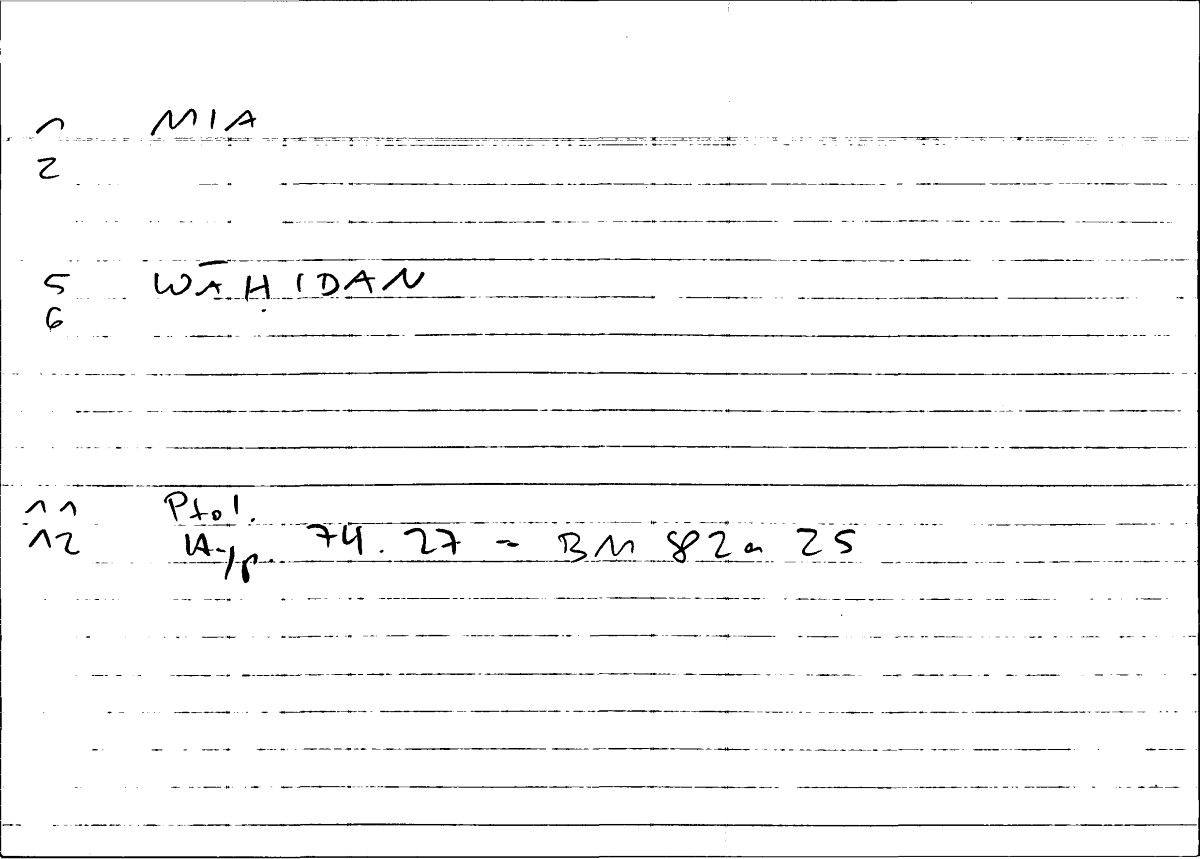 1 MIA
2
5 WĀḤIDAN
6
11 Ptol.
12 Hyp. 74.27 = BM 82a 25